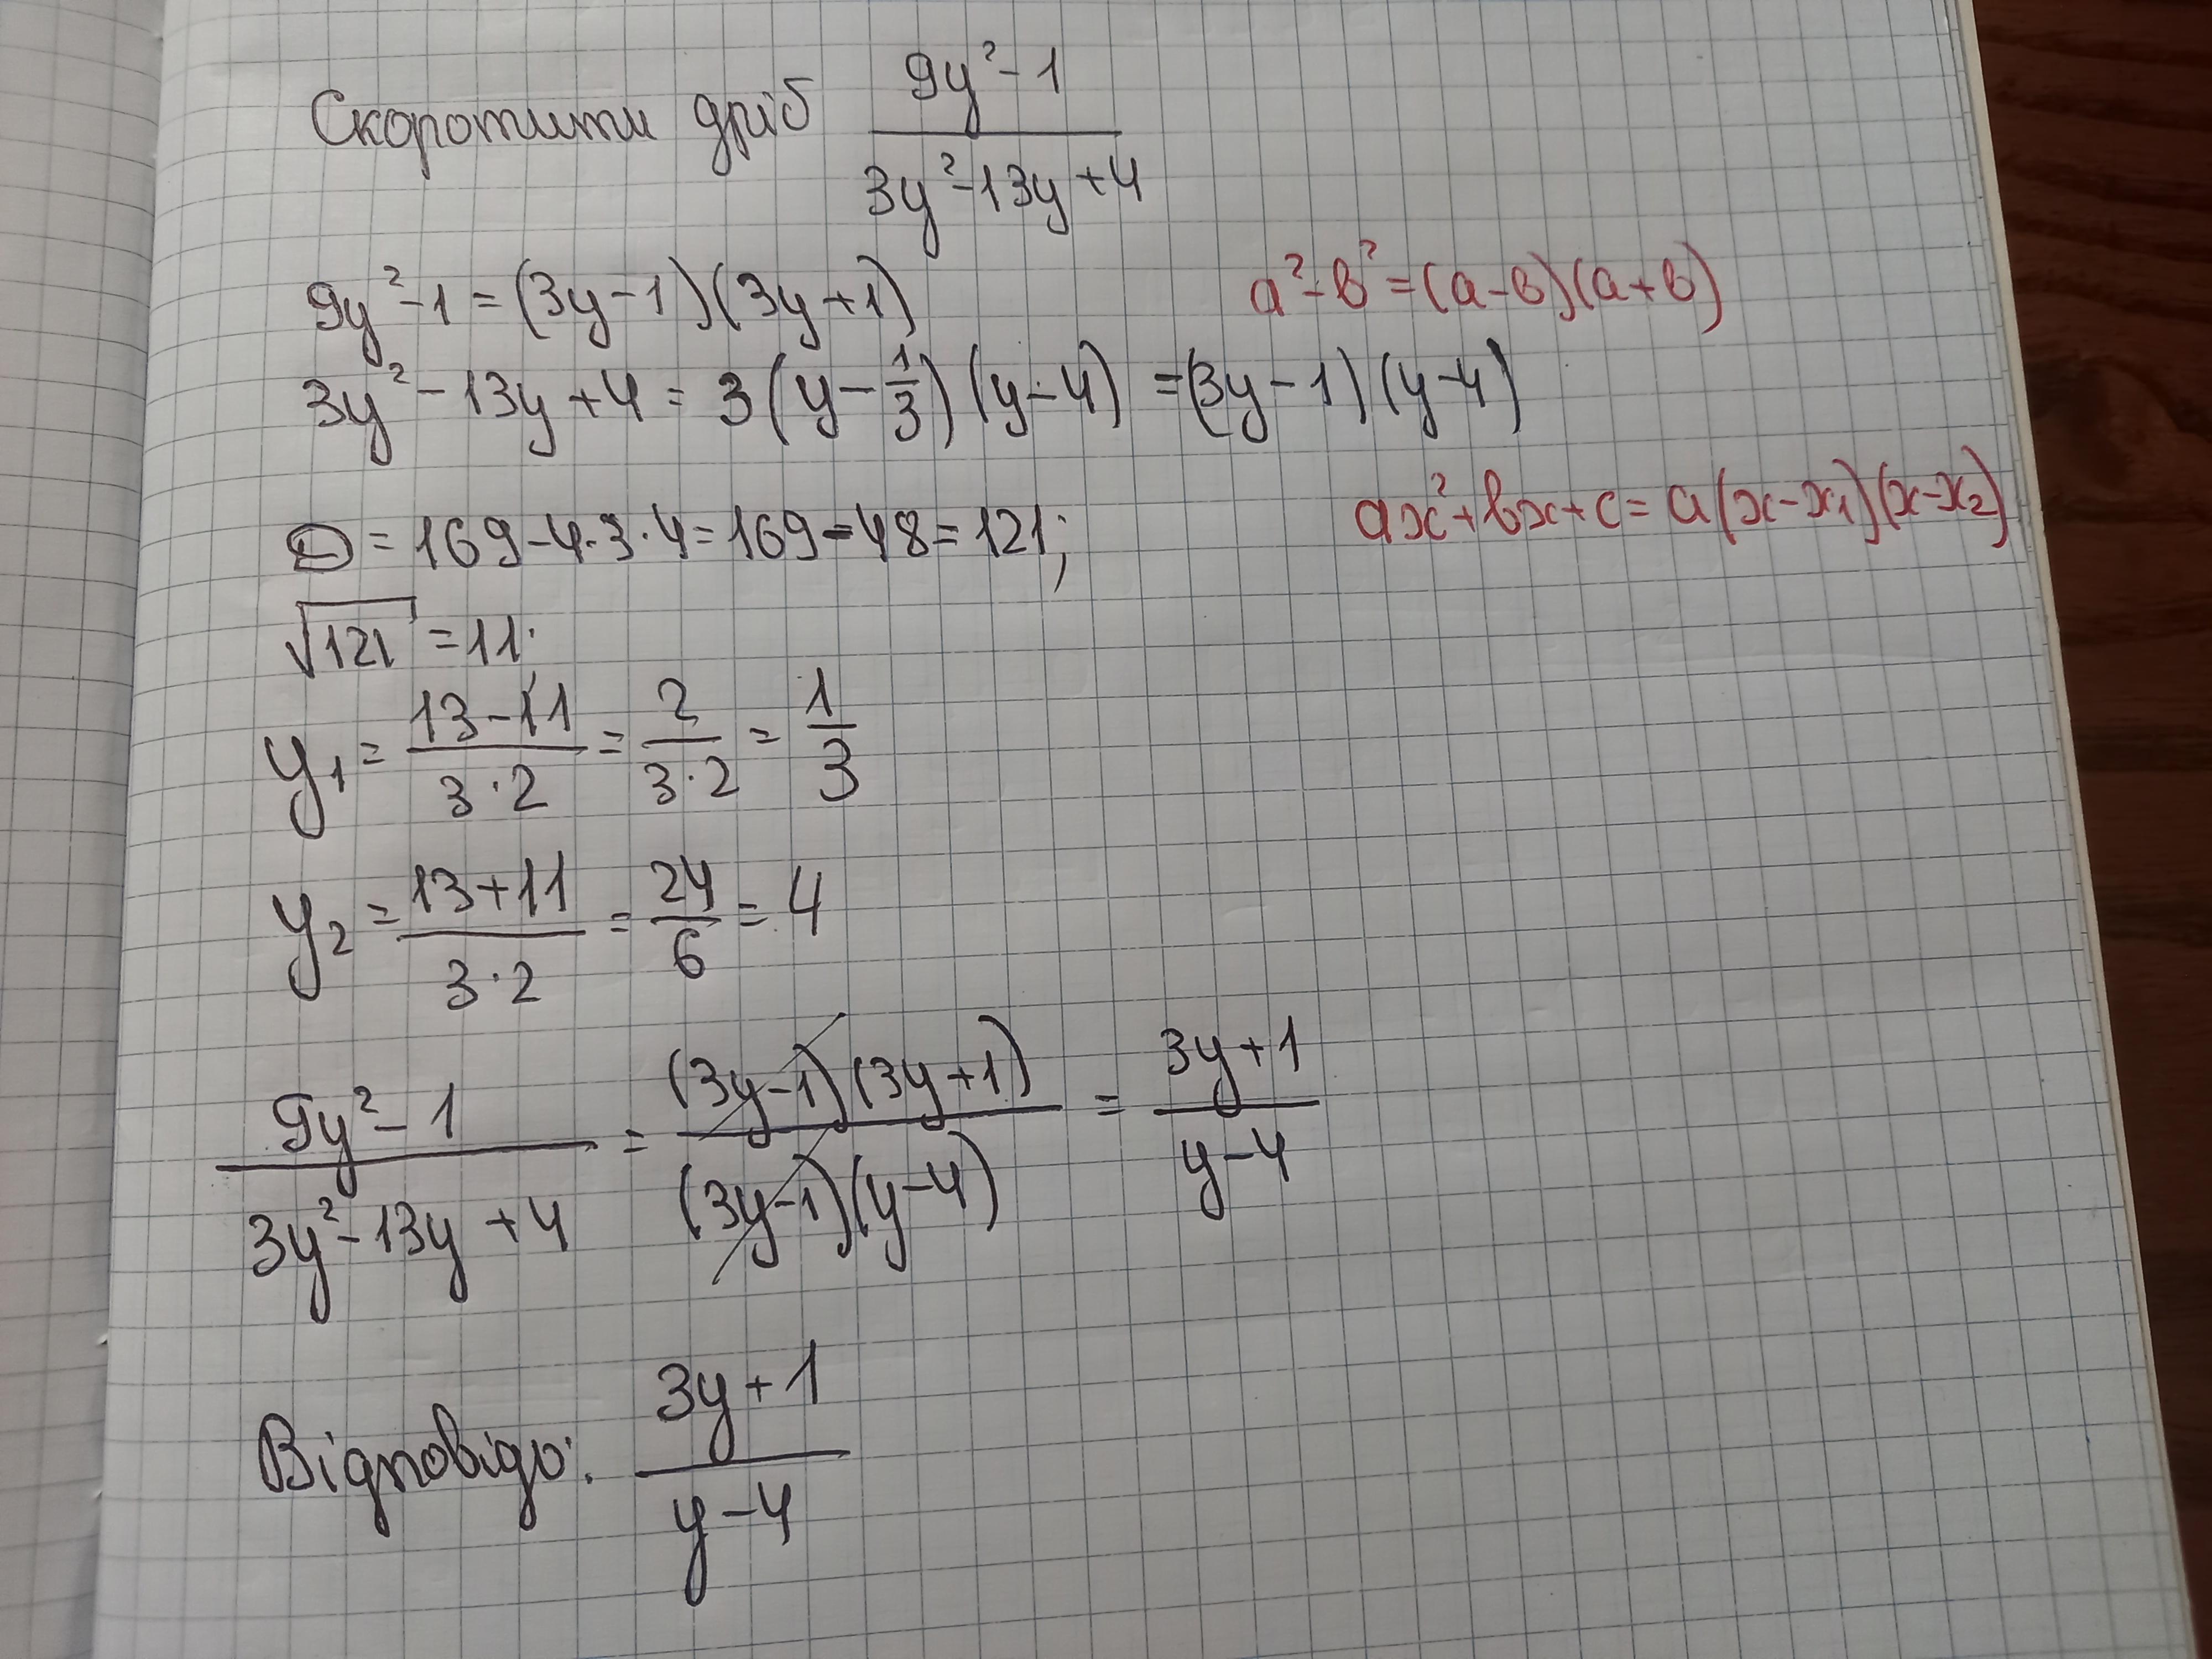 Скоротити дріб (9y² - 1)/(3y² - 13y + 4)
9y² - 1 = (3y - 1)(3y + 1)
a² - b² = (a - b)(a + b)
3y² - 13y + 4 = 3(y - 1/3)(y - 4) = (3y - 1)(y - 4)
ax² + bx + c = a(x - x₁)(x - x₂)
D = 169 - 4·3·4 = 169 - 48 = 121;
√121 = 11;
y₁ = (13 - 11)/(3·2) = 2/(3·2) = 1/3
y₂ = (13 + 11)/(3·2) = 24/6 = 4
(9y² - 1)/(3y² - 13y + 4) = ((3y - 1)(3y + 1))/((3y - 1)(y - 4)) = (3y + 1)/(y - 4)
Відповідь: (3y + 1)/(y - 4)